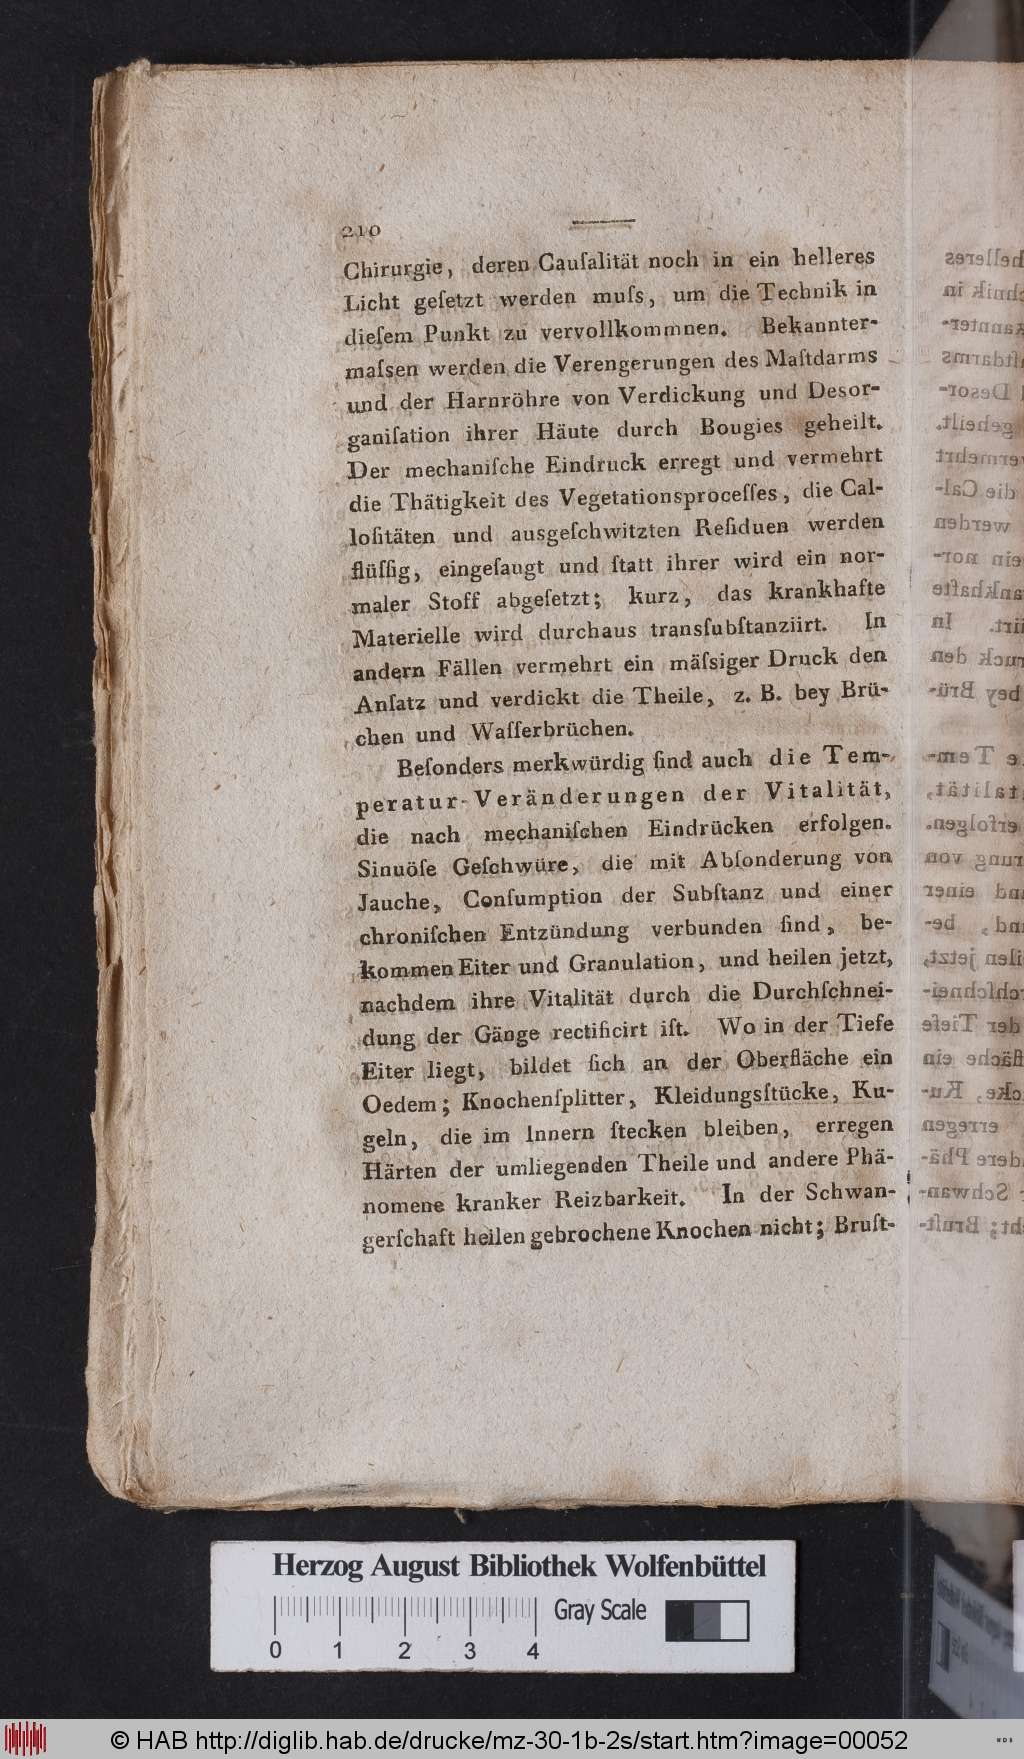 210
Chirurgie, deren Cauſalität noch in ein helleres
Licht geſetzt werden muſs, um die Technik in
dieſem Punkt zu vervollkommnen. Bekannter-
maſsen werden die Verengerungen des Maſtdarms
und der Harnröhre von Verdickung und Desor-
ganiſation ihrer Häute durch Bougies geheilt.
Der mechaniſche Eindruck erregt und vermehrt
die Thätigkeit des Vegetationsproceſſes, die Cal-
loſitäten und ausgeſchwitzten Reſiduen werden
flüſſig, eingeſaugt und ſtatt ihrer wird ein nor-
maler Stoff abgeſetzt; kurz, das krankhafte
Materielle wird durchaus transſubſtanziirt. In
andern Fällen vermehrt ein mäſsiger Druck den
Anſatz und verdickt die Theile, z. B. bey Brü-
chen und Waſſerbrüchen.
Beſonders merkwürdig ſind auch die Tem-
peratur-Veränderungen der Vitalität,
die nach mechaniſchen Eindrücken erfolgen.
Sinuöſe Geſchwüre, die mit Abſonderung von
Jauche, Conſumption der Subſtanz und einer
chroniſchen Entzündung verbunden ſind, be-
kommen Eiter und Granulation, und heilen jetzt,
nachdem ihre Vitalität durch die Durchſchnei-
dung der Gänge rectificirt iſt. Wo in der Tiefe
Eiter liegt, bildet ſich an der Oberfläche ein
Oedem; Knochenſplitter, Kleidungsſtücke, Ku-
geln, die im Innern ſtecken bleiben, erregen
Härten der umliegenden Theile und andere Phä-
nomene kranker Reizbarkeit. In der Schwan-
gerſchaft heilen gebrochene Knochen nicht; Bruſt-
Herzog August Bibliothek Wolfenbüttel
Gray Scale
0 1 2 3 4
© HAB http://diglib.hab.de/drucke/mz-30-1b-2s/start.htm?image=00052